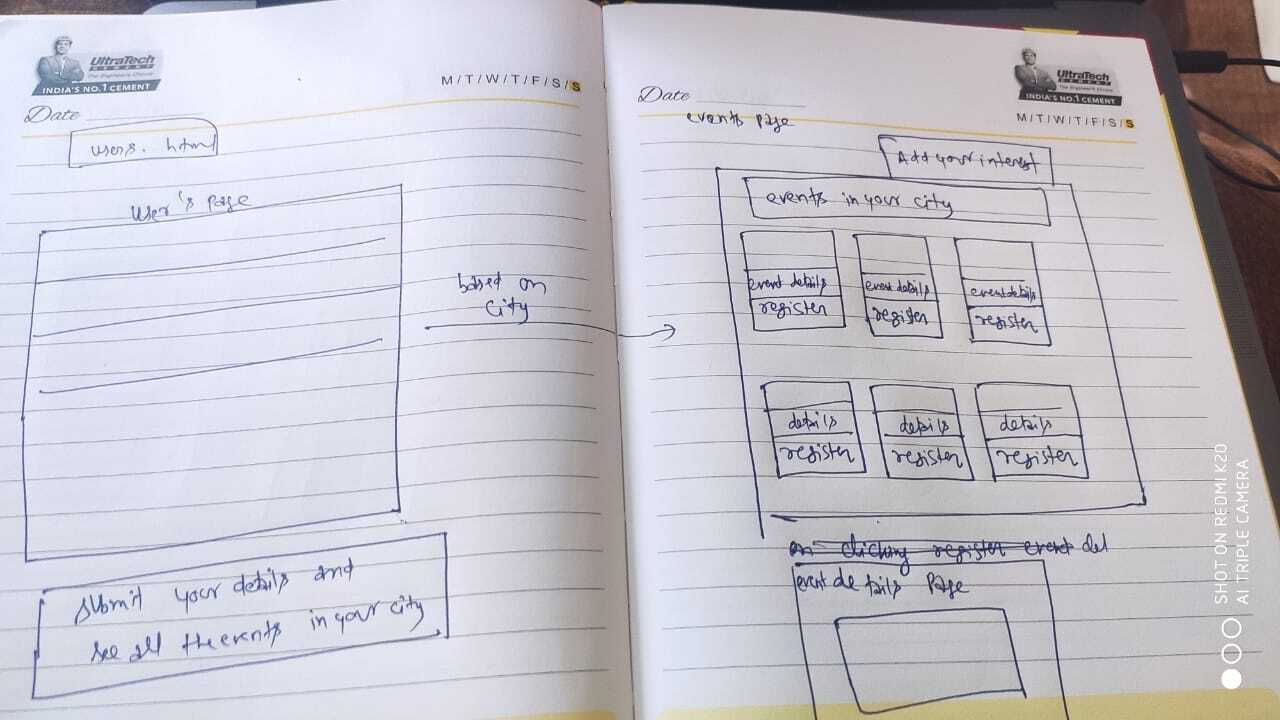 UltraTech
CEMENT
The Engineer's Choice
INDIA'S NO.1 CEMENT
M/T/W/T/F/S/S
Date
users.html
User's page
based on
city
submit your details and
see all the events in your city
UltraTech
CEMENT
The Engineer's Choice
INDIA'S NO.1 CEMENT
Date
M/T/W/T/F/S/S
events page
Add your interest
events in your city
event details event details event details
register register register
details details details
register register register
on clicking register event del
event details Page
SHOT ON REDMI K20
AI TRIPLE CAMERA